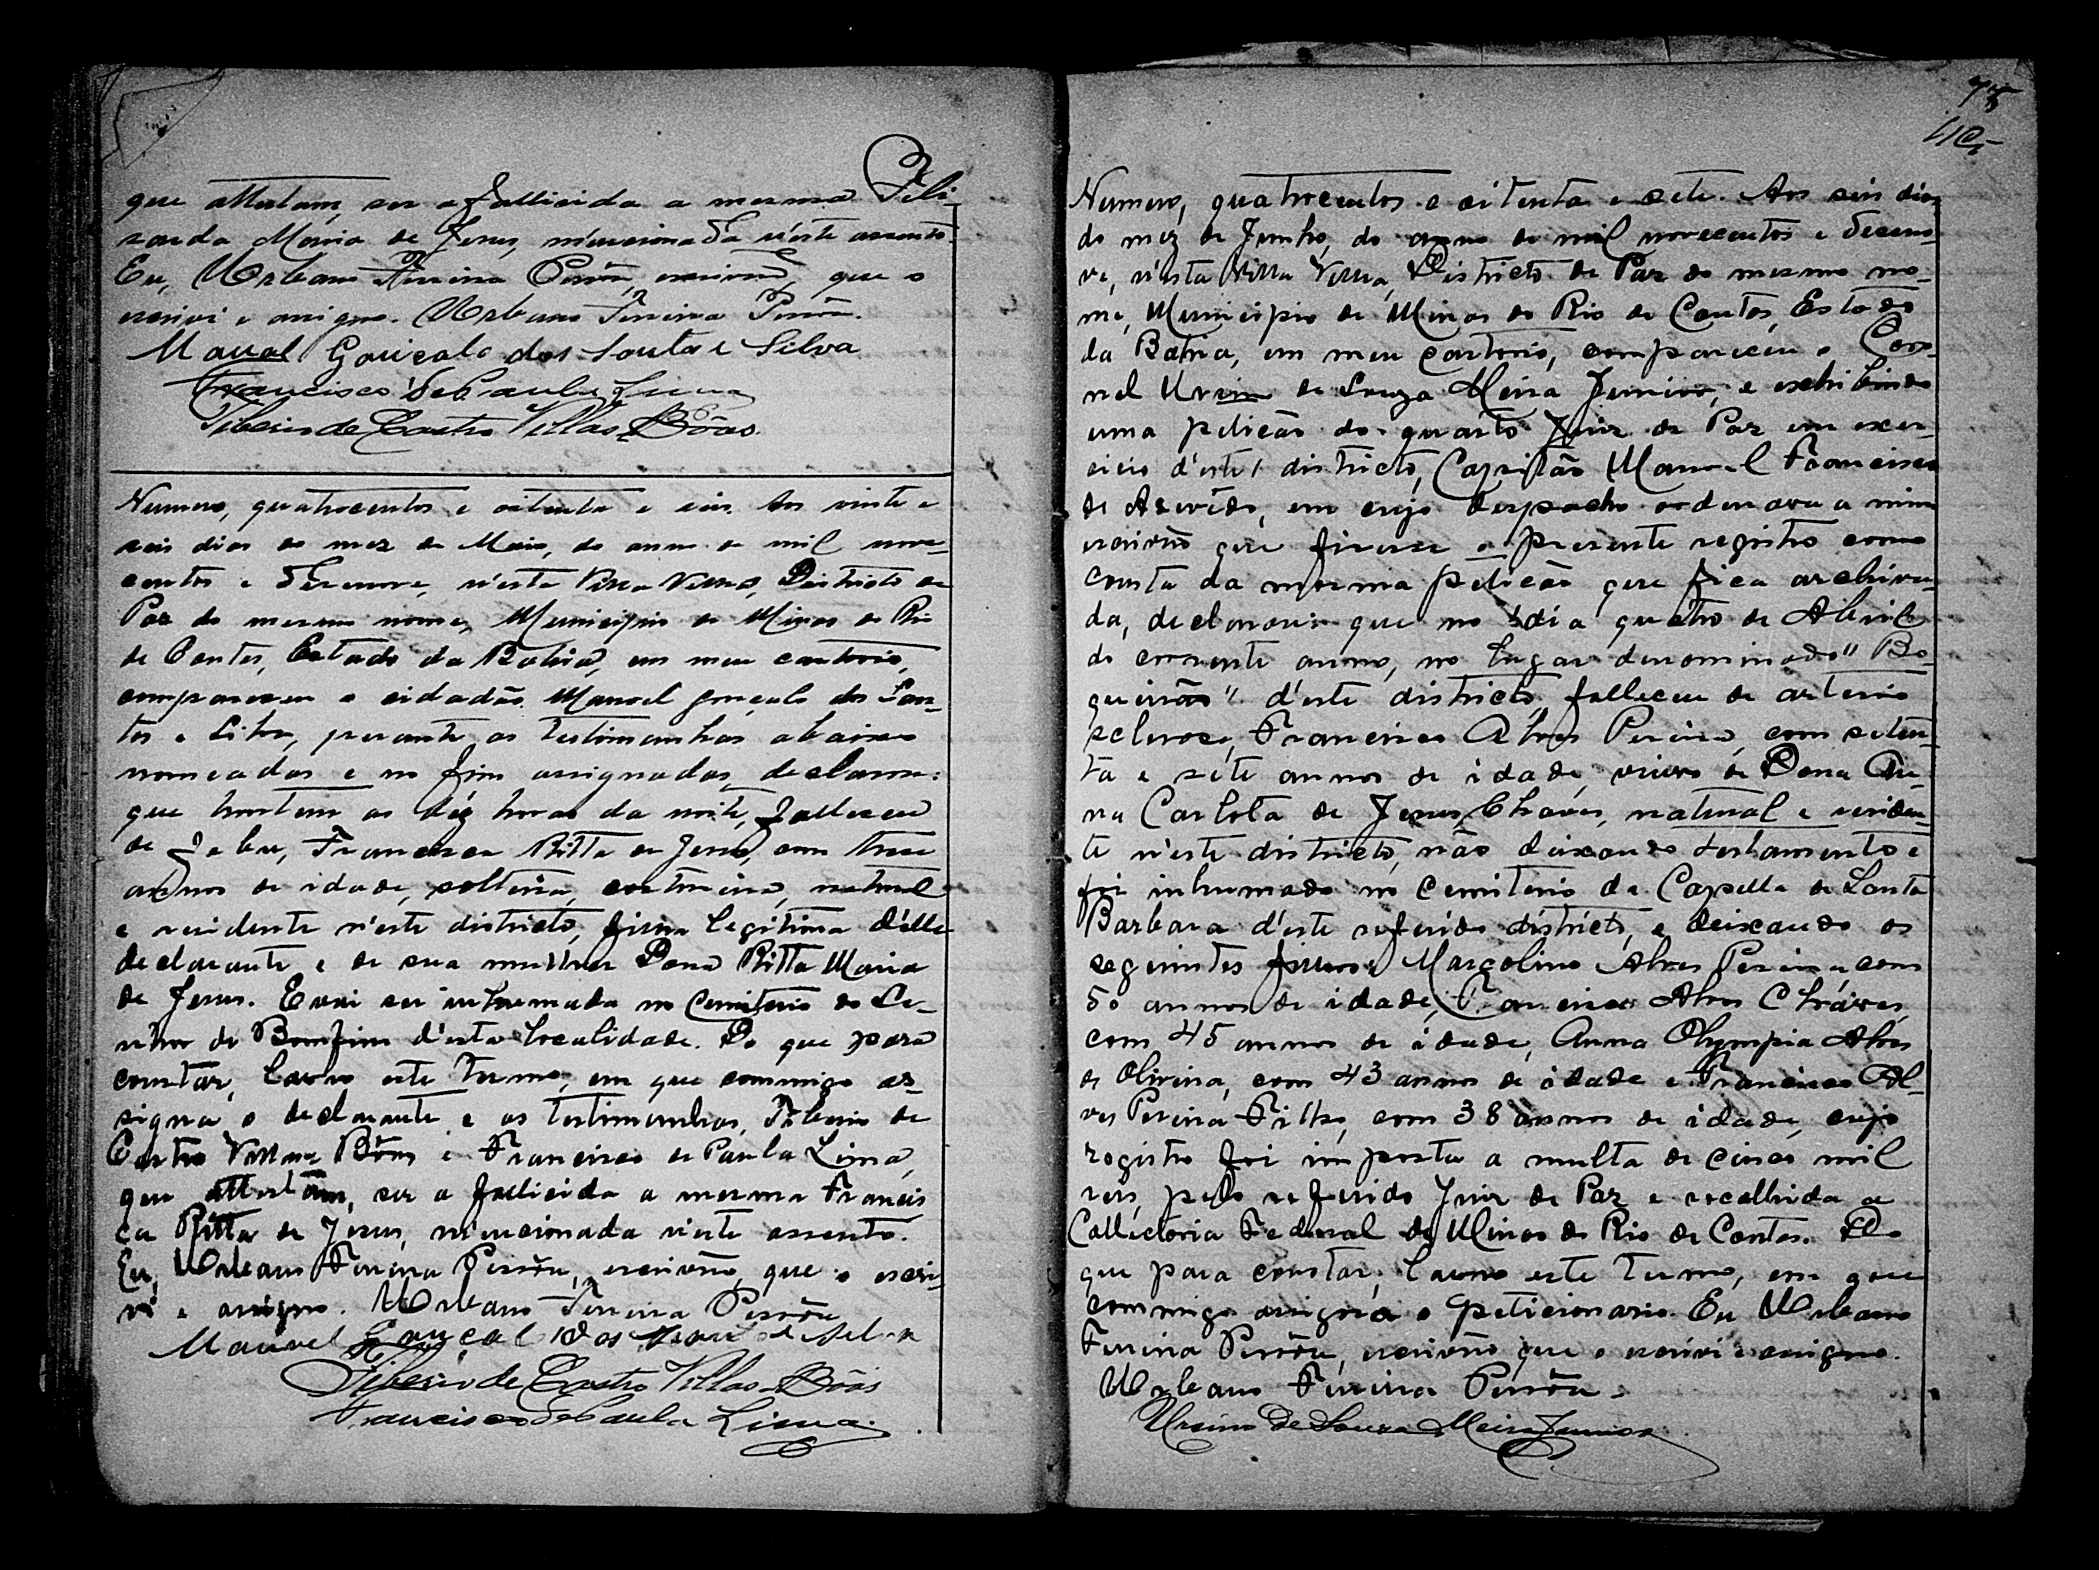 que attestam, ser a fallicida a mesma Feli-
zarda Maria de Jesus, mencionada n'este assento.
Eu, Urbano Pessôa, escrivão, que o
escrivi e assigno. Urbano Pessôa.
Manoel Gonçalo dos Santos e Silva
Francisco de Paula Lima
Tiberio de Castro Villas Bôas.
Numero, quatrocentos e oitenta e seis. Aos vinte e
seis dias do mez de Maio, do anno de mil nove-
centos e desenove, n'esta Villa Velha, Districto de
Paz do mesmo nome, Municipio de Minas do Rio
de Contas, Estado da Bahia, em meu cartorio,
compareceu o cidadão Manoel Gonçalo dos San-
tos e Silva, perante as testimunhas abaixo
nomeadas e no fim assignadas, declarou:
que hontem as déz horas da noite, falleceu
de Francisca Ritta de Jesus, com
annos de idade, solteira, costureira, natural
e residente n'este districto, filha legitima d'elle
declarante e de sua mulher Dona Ritta Maria
de Jesus. E vai ser inhumada no Cemiterio do Se-
nhor do Bomfim d'esta localidade. Do que para
constar, lavro este termo, em que commigo as-
signa o declarante e as testimunhas, Tiberio de
Castro Villas Bôas e Francisco de Paula Lima,
que attestam, ser a fallicida a mesma Francis
ca Ritta de Jesus, mencionada n'este assento.
Eu, Urbano Pessôa, escrivão, que o escri-
vi e assigno. Urbano Pessôa
Manoel Gonçalo dos Santos e Silva
Tiberio de Castro Villas Bôas
Francisco de Paula Lima.
Numero, quatrocentos e oitenta e sete. Aos seis dias
do mez de Junho, do anno de mil novecentos e deseno-
ve, n'esta Villa Velha, Districto de Paz do mesmo no-
me, Municipio de Minas do Rio de Contas, Estado
da Bahia, em meu cartorio, compareceu o Coro-
nel Ursino de Souza Meira Junior, e exhibindo
uma petição do quarto Juiz de Paz em exer-
cicio d'este districto, Capitão Manoel Francisco
de Asevêdo, em cujo despacho ordenava a mim
escrivão que fizesse o presente registro como
consta da mesma petição que fica archiva-
da, declarou: que no dia quatro de Abril
do corrente anno, no lugar denominado "Bo-
queirão" d'este districto, falleceu de arterio
sclerose, Francisco Alves Pereira, com seten-
ta e sete annos de idade, viuvo de Dona An-
na Carlota de Jesus Chaves, natural e residen-
te n'este districto, não deixando testamento e
foi inhumado no cemiterio da Capella de Santa
Barbara d'este referido districto, e deixando os
seguintes filhos: Marcolino Alves Pereira com
50 annos de idade, Alves Cháves,
com 45 annos de idade, Anna Olympia Alves
de Oliveira, com 43 annos de idade e Francisco Al-
ves Pereira Filho, com 38 annos de idade, cujo
registro foi imposta a multa de cinco mil
reis, pelo referido Juiz de Paz e recolhida a
Collectoria Federal de Minas do Rio de Contas. Do
que para constar, lavro este termo, em que
commigo assigna o peticionario. Eu Urbano
Pessôa, escrivão, que o escrivi e assigno.
Urbano Pessôa.
Ursino de Souza Meira Junior